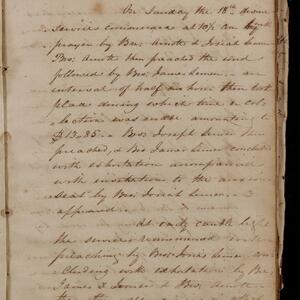 On Sunday the 18th divine
service commenced at 10½ Am by
prayer by Bro. Arnott & Josiah Lemen
Bro. Arnott then preached the word
followed by Bro. James Lemen. an
interval of half an hour then took
place during which time a col-
lection was made amounting to
$13,85. Bro. Joseph Lemen then
preached, & Bro. James Lemen concluded
with exhortation accompanied
with invitation to the anxious
seat by Bro. Josiah Lemen. 3
appeared
At early candle light
the services recommenced with
preaching by Bro. Josiah Lemen con-
cluding with exhortation by Bro
James & Lemen & Bro. Arnott